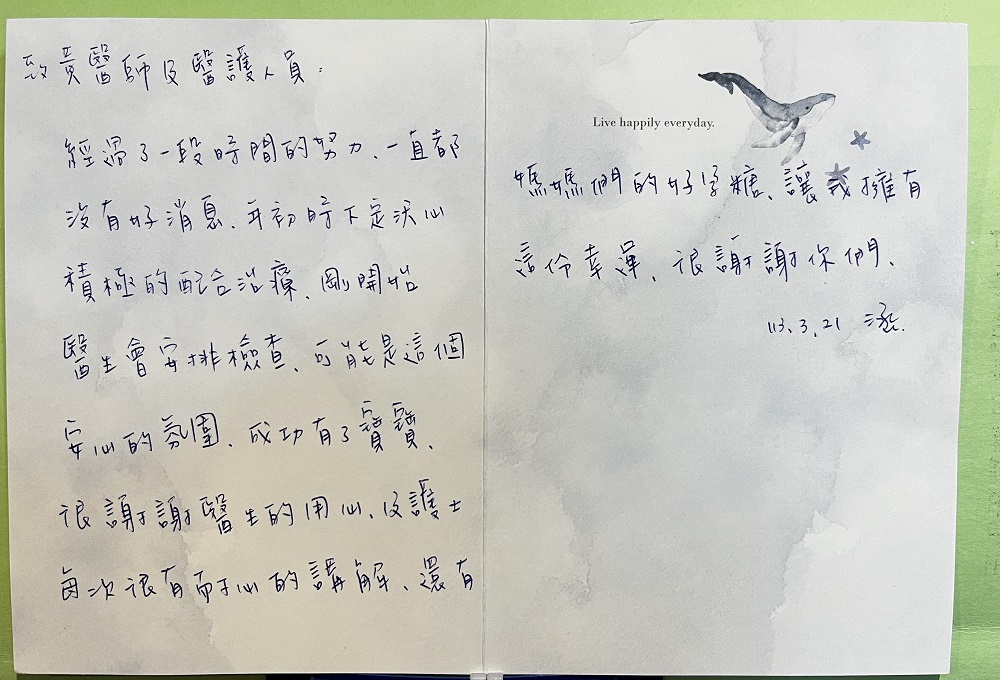 致黃醫師及醫護人員:
經過了一段時間的努力、一直都
沒有好消息、年初時下定決心
積極的配合治療、剛開始
醫生會安排檢查、可能是這個
安心的氛圍、成功有了寶寶、
很謝謝醫生的用心、及護士
每次很有耐心的講解、還有
Live happily everyday.
媽媽們的好孕糖、讓我擁有
這份幸運、很謝謝你們、
113.3.21